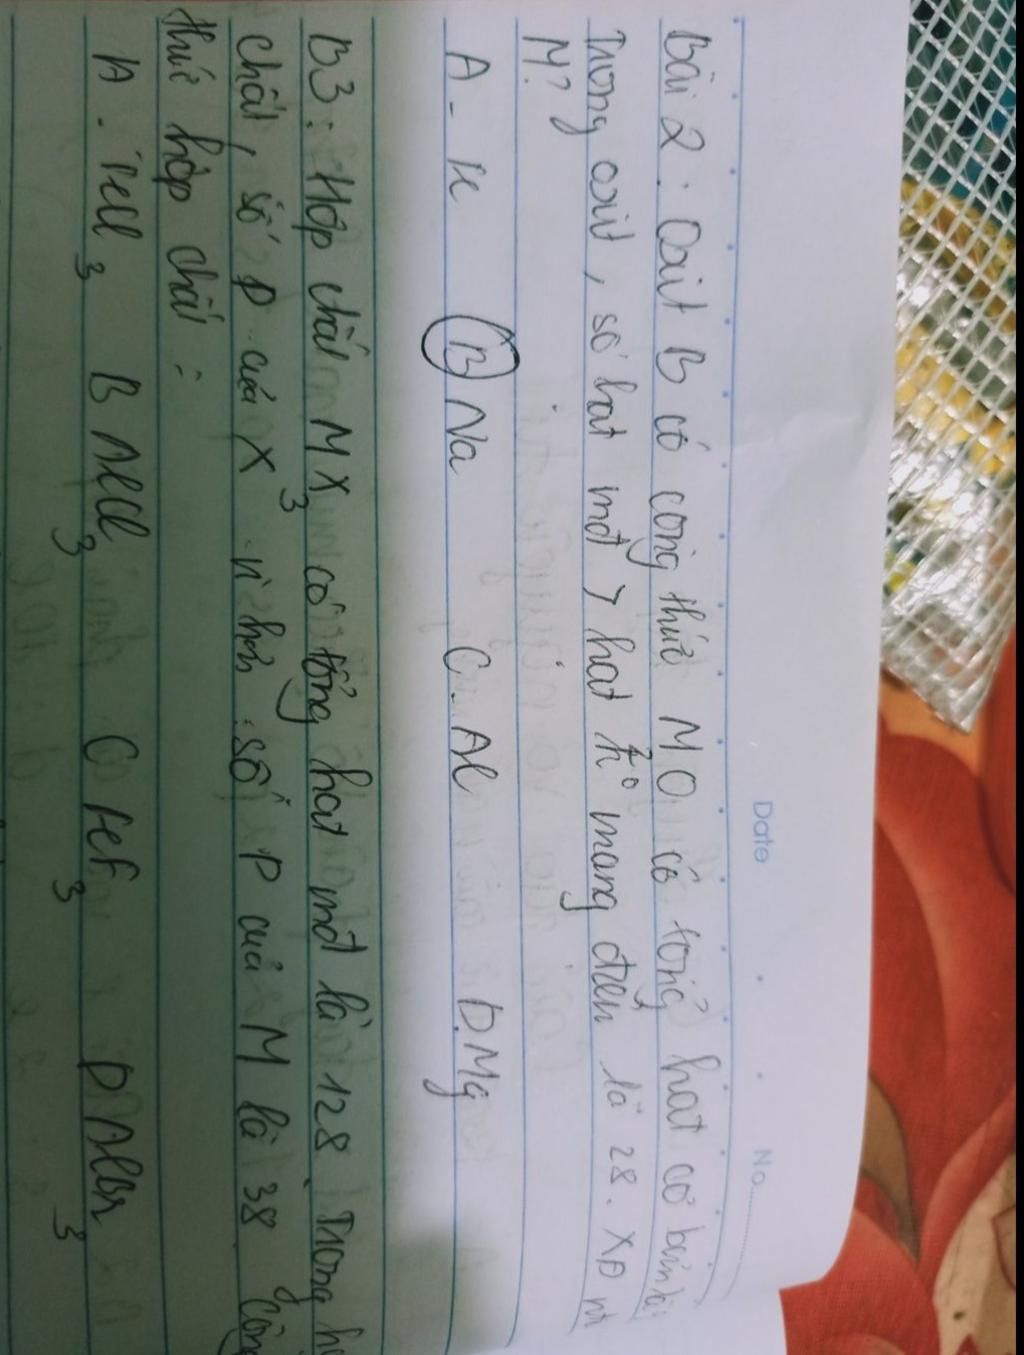 Date No.
Bài 2: Oxit B có công thức MO có tổng hạt cơ bản là
Trong oxit, số hạt mđ > hạt ko mang điện là 28. XĐ nt
M?
A - K B Na C - Al D. Mg
B3: Hợp chất MX3 có tổng hạt mđ là 128. Trong h
chất, số p của X n số P của M là 38 Công
thức hợp chất:
A. FeCl3 B AlCl3 C FeF3 D AlBr3